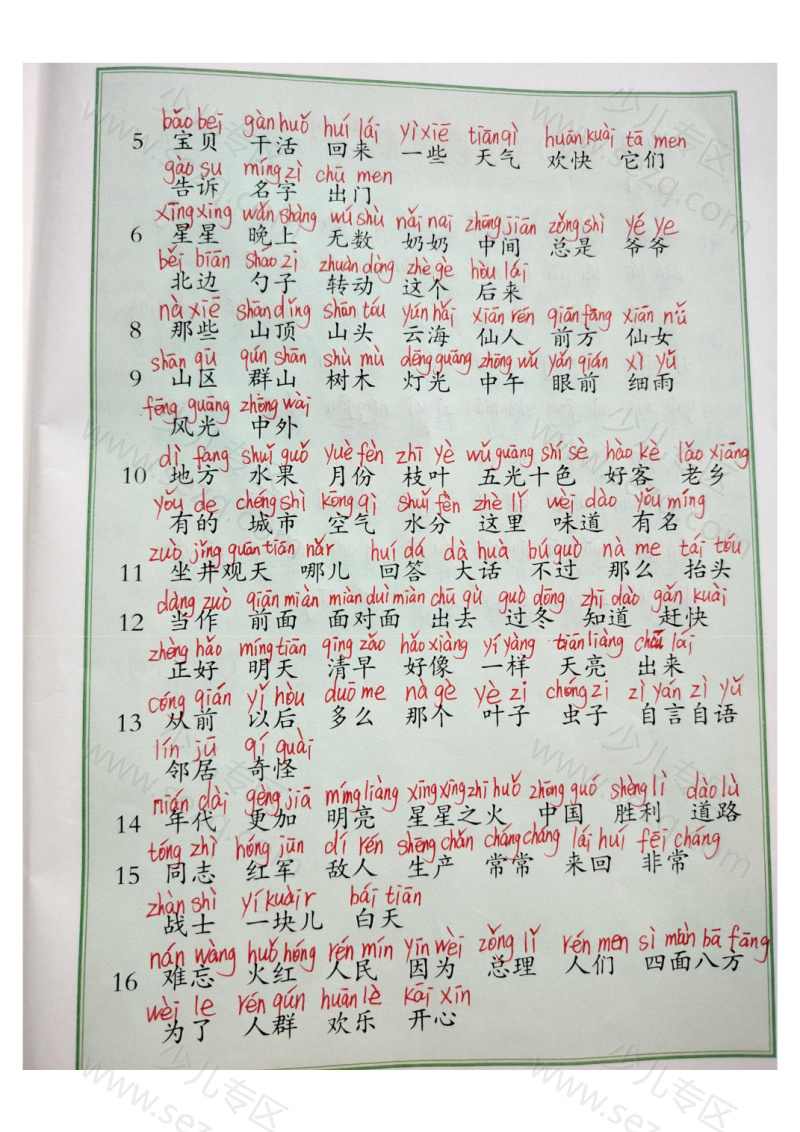 bǎo bèi gàn huǒ huí lái yì xiē tiān qì huān kuài tā men
5 宝贝 干活 回来 一些 天气 欢快 它们
gào su míng zì chū men
告诉 名字 出门
xīng xing wǎn shàng wú shù nǎi nai zhōng jiān zǒng shì yé ye
6 星星 晚上 无数 奶奶 中间 总是 爷爷
běi biān sháo zi zhuàn dòng zhè gè hòu lái
北边 勺子 转动 这个 后来
nà xiē shān dǐng shān tóu yún hǎi xiān rén qián fāng xiān nǚ
8 那些 山顶 山头 云海 仙人 前方 仙女
shān qū qún shān shù mù dēng guāng zhōng wǔ yǎn qián xì yǔ
9 山区 群山 树木 灯光 中午 眼前 细雨
fēng guāng zhōng wài
风光 中外
dì fang shuǐ guǒ yuè fèn zhī yè wǔ guāng shí sè hào kè lǎo xiāng
10 地方 水果 月份 枝叶 五光十色 好客 老乡
yǒu de chéng shì kōng qì shuǐ fèn zhè lǐ wèi dào yǒu míng
有的 城市 空气 水分 这里 味道 有名
zuò jǐng guān tiān nǎr huí dá dà huà bú guò nà me tái tóu
11 坐井观天 哪儿 回答 大话 不过 那么 抬头
dàng zuò qián miàn miàn duì miàn chū qù guò dōng zhī dào gǎn kuài
12 当作 前面 面对面 出去 过冬 知道 赶快
zhèng hǎo míng tiān qīng zǎo hǎo xiàng yí yàng tiān liàng chū lái
正好 明天 清早 好像 一样 天亮 出来
cóng qián yǐ hòu duō me nà gè yè zi chóng zi zì yán zì yǔ
13 从前 以后 多么 那个 叶子 虫子 自言自语
lín jū qí guài
邻居 奇怪
nián dài gèng jiā míng liàng xīng xīng zhī huǒ zhōng guó shèng lì dào lù
14 年代 更加 明亮 星星之火 中国 胜利 道路
tóng zhì hóng jūn dí rén shēng chǎn cháng cháng lái huí fēi cháng
15 同志 红军 敌人 生产 常常 来回 非常
zhàn shì yí kuàir bái tiān
战士 一块儿 白天
nán wàng huǒ hóng rén mín yīn wèi zǒng lǐ rén men sì miàn bā fāng
16 难忘 火红 人民 因为 总理 人们 四面八方
wèi le rén qún huān lè kāi xīn
为了 人群 欢乐 开心
少儿专区
www.sezq.com